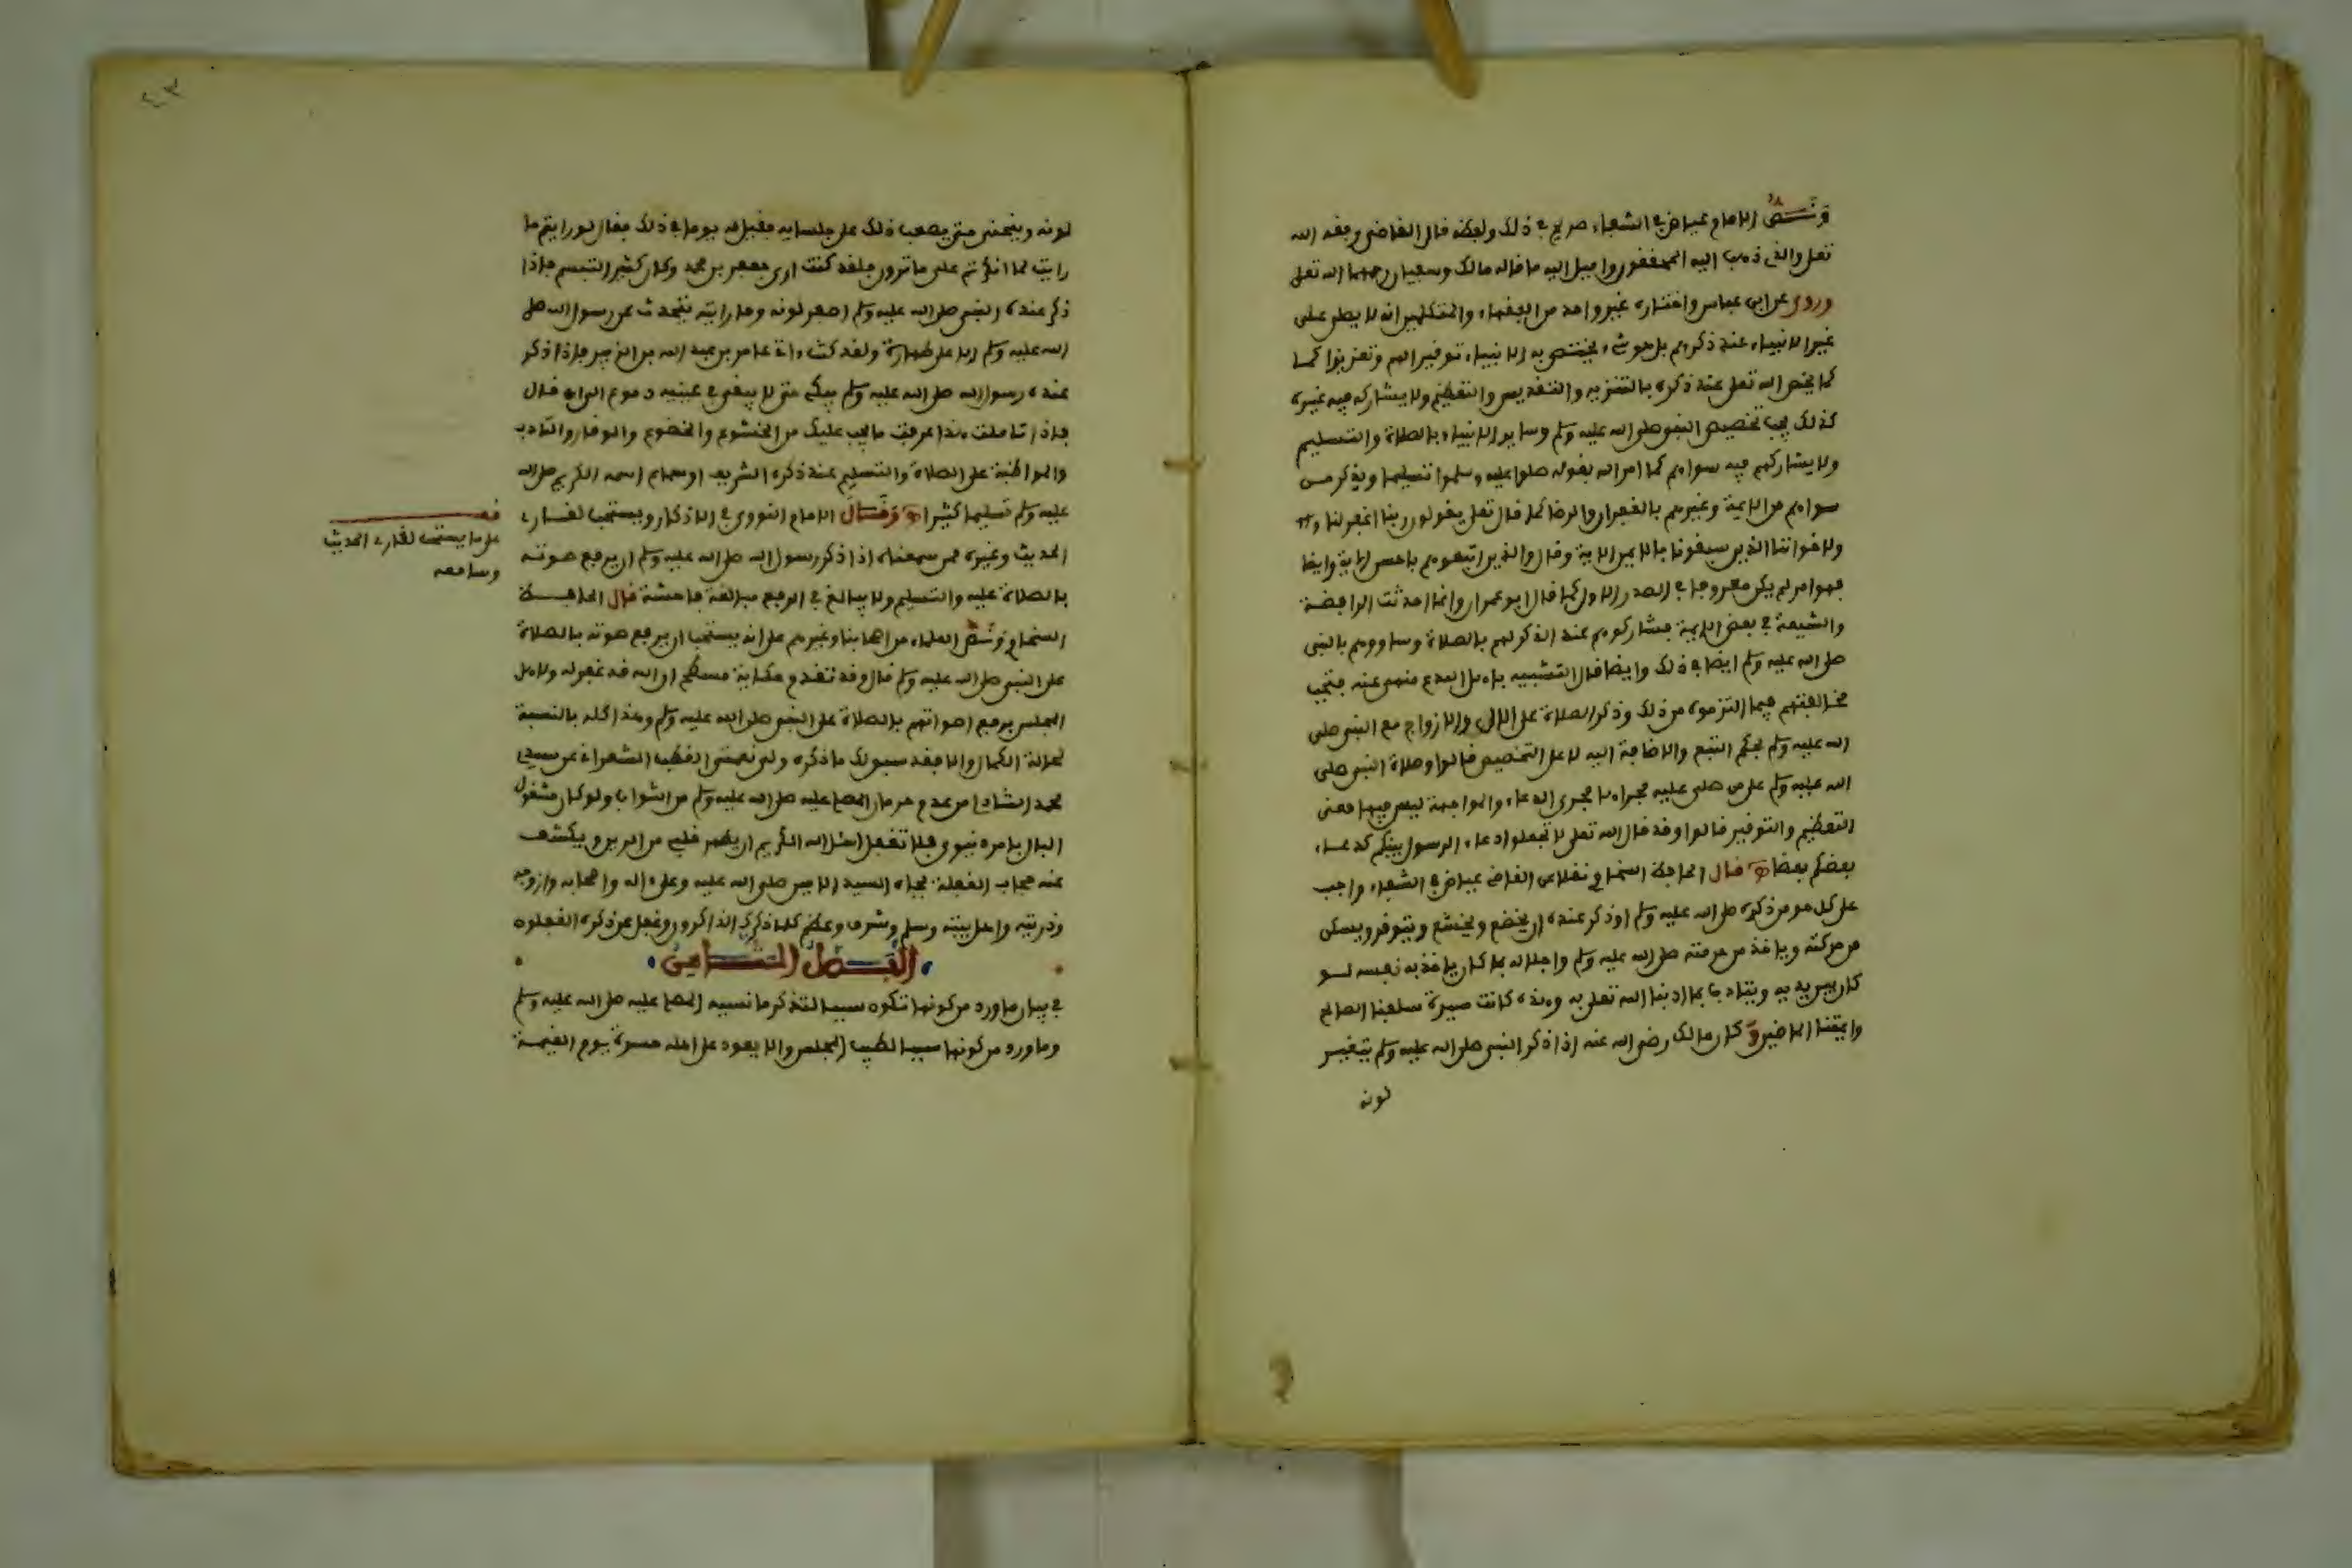 ونص الامام عياض في الشفاء صريح في ذلك ولفظه قال القاضي وفقه الله
تعلى والذي ذهب اليه المحققون واميل اليه ما قاله مالك وسفيان رحمهما الله تعلى
وروي عن ابن عباس واختاره غير واحد من الفقهاء والمتكلمين انه لا يصلى على
غير الانبياء عند ذكرهم بل هو شيء يختص به الانبياء توقيرا لهم وتعزيزا كما
كما يخص الله تعلى عند ذكره بالتنزيه والتقديس والتعظيم ولا يشاركه فيه غيره
كذلك يجب تخصيص النبي صلى الله عليه وسلم وساير الانبياء بالصلاة والتسليم
ولا يشاركهم فيه سواهم كما امر الله بقوله صلوا عليه وسلموا تسليما ويذكر من
سواهم من الايمة وغيرهم بالغفران والرضا كما قال تعلى يقولون ربنا اغفر لنا
ولاخواننا الذين سبقونا بالايمن الاية وقال والذين اتبعوهم باحسن الاية وايضا
فهو امر لم يكن معروفا في الصدر الاول كما قال ابو عمران وانما احدثت الرافضة
والشيعة في بعض الايمة فشاركوهم عند الذكر لهم بالصلاة وساووهم بالنبي
صلى الله عليه وسلم ايضا في ذلك وايضا قال التشبيه باهل البدع منهي عنه فتجب
مخالفتهم فيما التزموه من ذلك وذكر الصلاة على الال والازواج مع النبي صلى
الله عليه وسلم بحكم التبع والاضافة اليه لا على التخصيص قالوا وصلاة النبي صلى
الله عليه وسلم على من صلى عليه مجراها مجرى الدعاء والمواجهة ليس فيها معنى
التعظيم والتوقير قالوا وقد قال الله تعلى لا تجعلوا دعاء الرسول بينكم كدعاء
بعضكم بعضا قال الحافظ السخاوي نقلا عن القاضي عياض في الشفاء واجب
على كل مومن ذكره صلى الله عليه وسلم او ذكر عنده ان يخضع ويخشع ويتوقر ويسكن
من حركته وياخذ من حرمته صلى الله عليه وسلم واجلاله بما كان ياخذ به نفسه لو
كان بين يديه ويتادب بما ادبنا الله تعلى به وهذه كانت سيرة سلفنا الصالح
وايمتنا الماضين وكان مالك رضي الله عنه اذا ذكر النبي صلى الله عليه وسلم يتغير
لونه
٤٣
لونه وينحني حتى يصعب ذلك على جلسايه فقيل له يوما في ذلك فقال لو رايتم ما
رايت لما انكرتم على ما ترون فلقد كنت ارى جعفر بن محمد وكان كثير التبسم فاذا
ذكر عنده النبي صلى الله عليه وسلم اصفر لونه وما رايته يتحدث عن رسول الله صلى
الله عليه وسلم الا على طهارة ولقد كنت داتي عامر بن عبد الله بن الزبير فاذا ذكر
عنده رسول الله صلى الله عليه وسلم يبكي حتى لا يبقى في عينيه دموع الى ان قال
فاذا تاملت هذا عرفت ما يجب عليك من الخشوع والخضوع والوقار والتادب
والمواظبة على الصلاة والتسليم عند ذكره الشريف او سماع اسمه الكريم صلى الله
عليه وسلم تسليما كثيرا وقال الامام النووي في الاذكار ويستحب لقارء
الحديث وغيره ممن سمعناه اذا ذكر رسول الله صلى الله عليه وسلم ان يرفع صوته
بالصلاة عليه والتسليم ولا يبالغ في الرفع مبالغة فاحشة قال الحافظ
السخاوي ونص العلماء من اصحابنا وغيرهم على انه يستحب ان يرفع صوته بالصلاة
على النبي صلى الله عليه وسلم قال وقد تقدم حكاية مسطح ان الله قد غفر له ولاهل
المجلس برفع اصواتهم بالصلاة على النبي صلى الله عليه وسلم وهذا كله بالنسبة
لحالة الكمال والا فقد سبق لك ما ذكره ولي نعمتي القطب الشعراني عن سيدي
محمد الشناوي من عدم حرمان المصلي عليه صلى الله عليه وسلم من الثواب ولو كان مشغول
البال بامر دنيوي فلا تغفل اسئل الله الكريم ان يطهر قلبي من الرين ويكشف
عنه حجاب الغفلة بجاه السيد الامين صلى الله عليه وعلى اله واصحابه وازوجه
وذريته واهل بيته وسلم وشرف وعظم كلما ذكرك الذاكرون وغفل عن ذكره الغفلون
الفصل الثامن
في بيان ما ورد من كونها تكون سببا لتذكر ما نسيه المصلي عليه صلى الله عليه وسلم
وما ورد من كونها سببا لطيب المجلس والا يعود على اهله حسرة يوم القيمة
قف
على ما يستحب لقارء الحديث
وسامعه